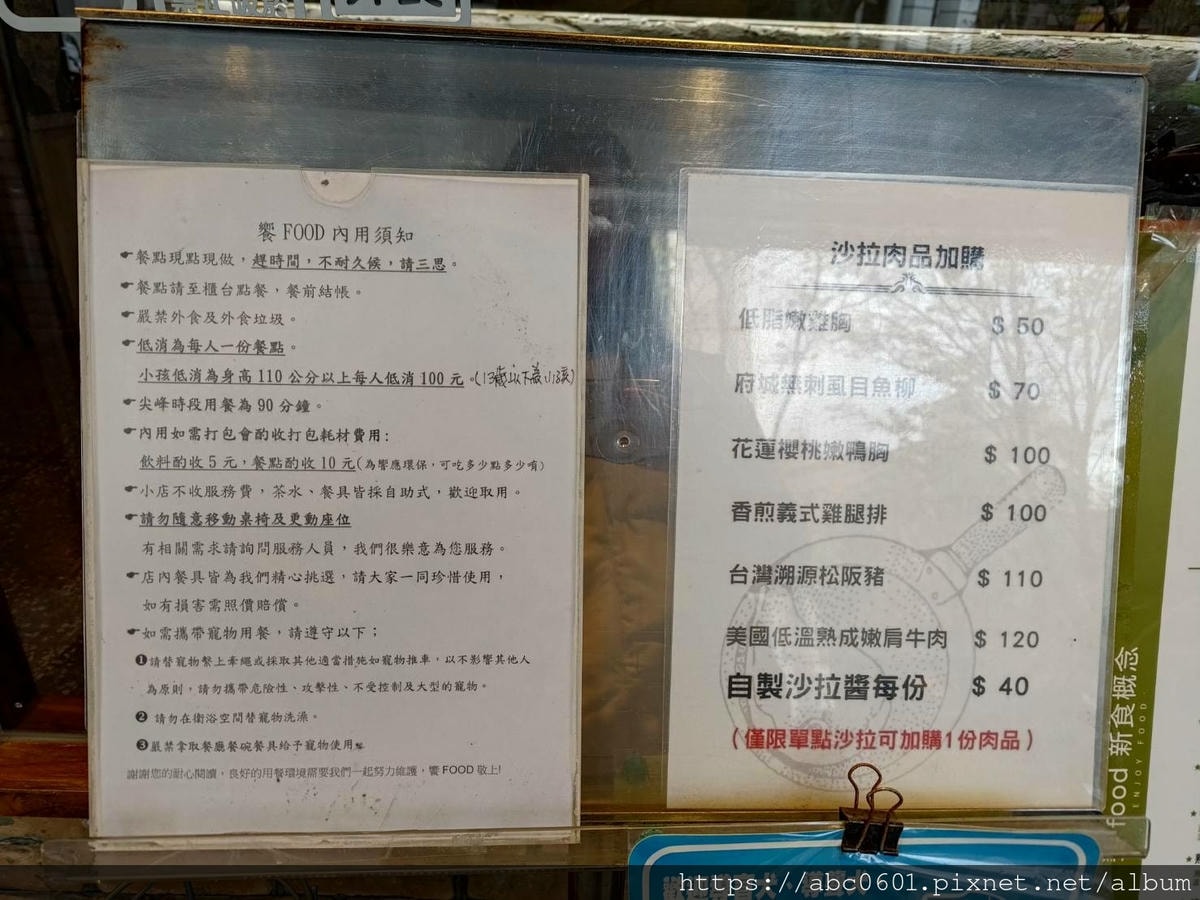 饗 FOOD 內用須知
☛餐點現點現做，趕時間，不耐久候，請三思。
☛餐點請至櫃台點餐，餐前結帳。
☛嚴禁外食及外食垃圾。
☛低消為每人一份餐點。
小孩低消為身高 110 公分以上每人低消 100 元。(13歲以下為小孩)
☛尖峰時段用餐為 90 分鐘。
☛內用如需打包會酌收打包耗材費用：
飲料酌收 5 元，餐點酌收 10 元(為響應環保，可吃多少點多少唷)
☛小店不收服務費，茶水、餐具皆採自助式，歡迎取用。
☛請勿隨意移動桌椅及更動座位
有相關需求請詢問服務人員，我們很樂意為您服務。
☛店內餐具皆為我們精心挑選，請大家一同珍惜使用，
如有損害需照價賠償。
☛如需攜帶寵物用餐，請遵守以下；
❶請替寵物繫上牽繩或採取其他適當措施如寵物推車，以不影響其他人
為原則，請勿攜帶危險性、攻擊性、不受控制及大型的寵物。
❷ 請勿在衛浴空間替寵物洗澡。
❸嚴禁拿取餐廳餐碗餐具給予寵物使用。
謝謝您的耐心閱讀，良好的用餐環境需要我們一起努力維護，饗 FOOD 敬上!
沙拉肉品加購
低脂嫩雞胸 $ 50
府城無刺虱目魚柳 $ 70
花蓮櫻桃嫩鴨胸 $ 100
香煎義式雞腿排 $ 100
台灣溯源松阪豬 $ 110
美國低溫熟成嫩肩牛肉 $ 120
自製沙拉醬每份 $ 40
（僅限單點沙拉可加購1份肉品）
food 新食概念
ENJOY FOOD
https://abc0601.pixnet.net/album